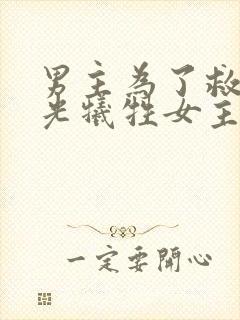 男主為了救
光犧牲女主
一定要開心